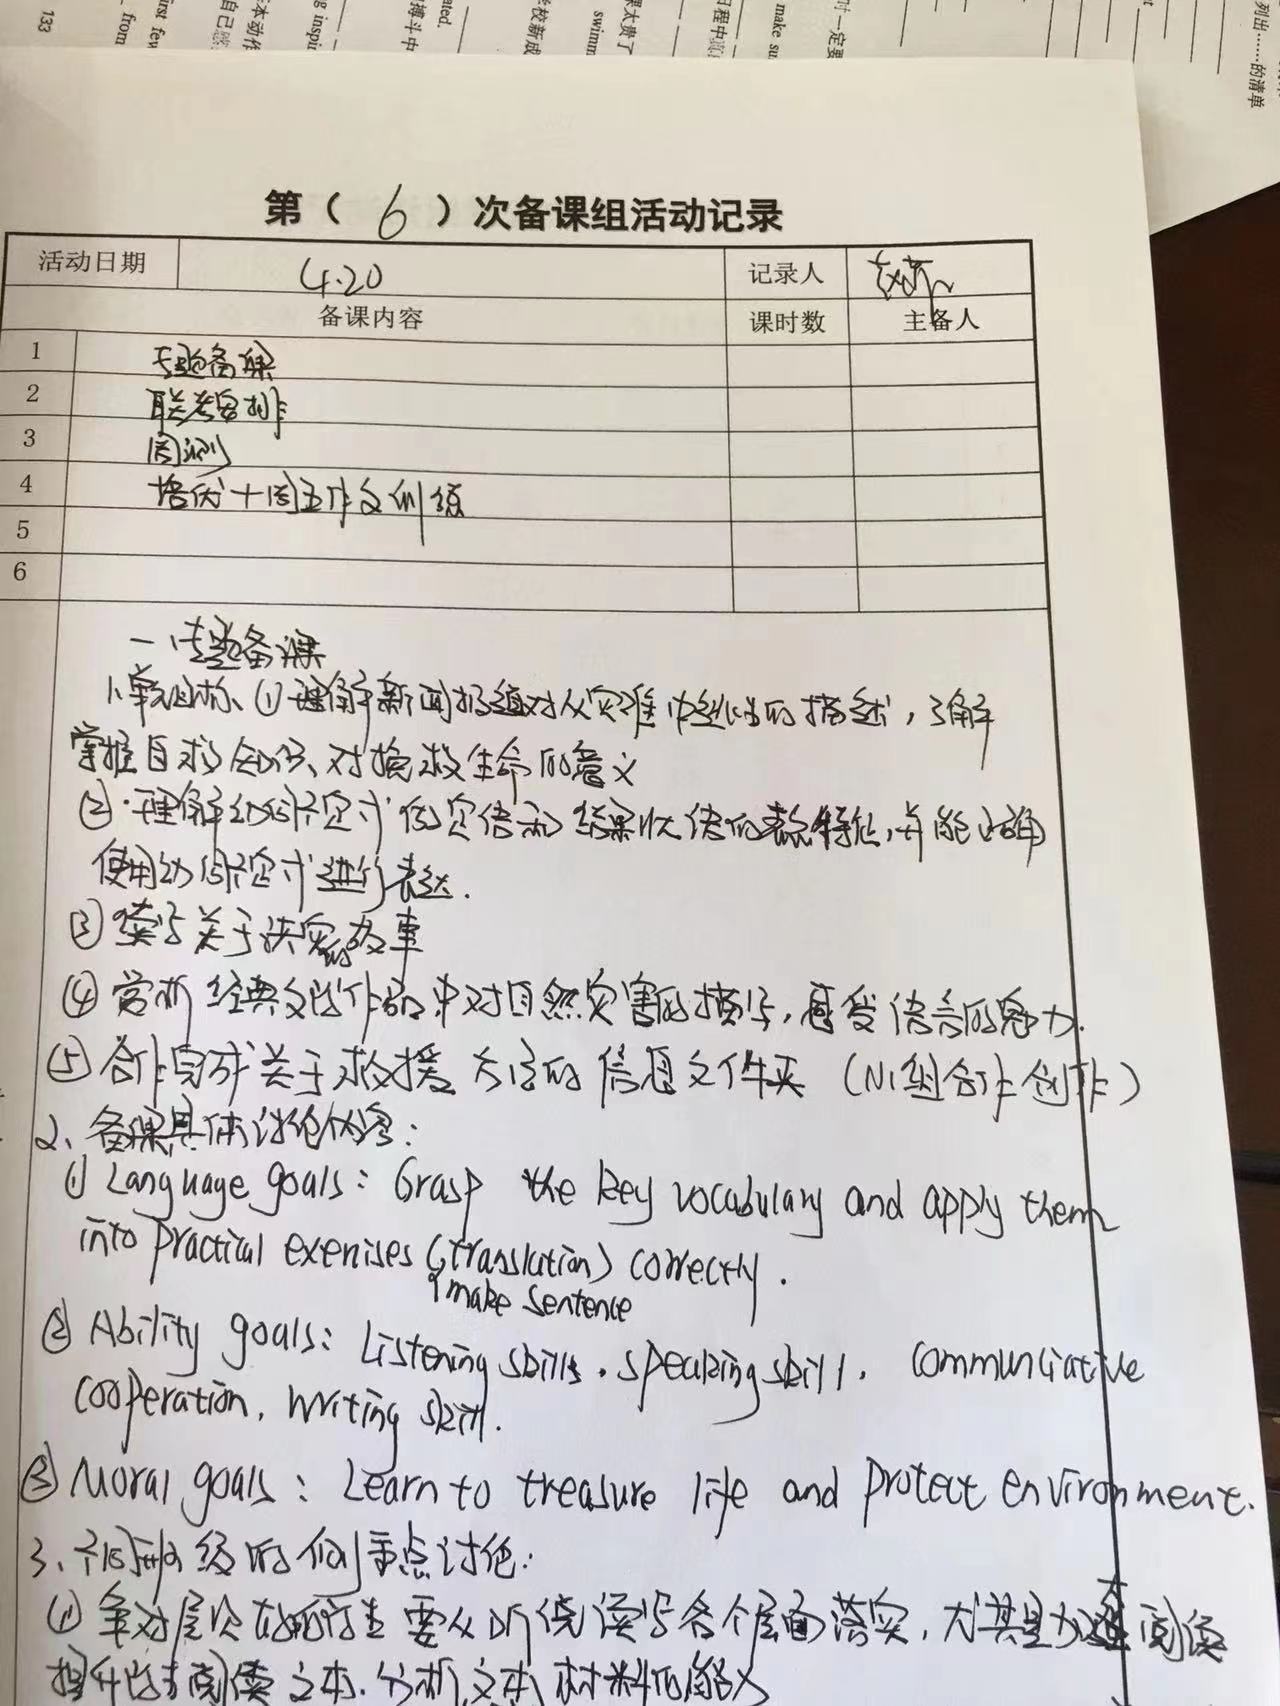 133
from
first few
自己感
本动作
ng inspi
搏斗中
ated.
学校新成
swimm
课太贵了
日程中真
make su
时一定要
nt
列出……的清单
第（6）次备课组活动记录
活动日期 4.20 记录人
备课内容 课时数 主备人
1 专题备课
2 联考安排
3 周测
4 培优+周五作文训练
5
6
一、专题备课
1、单元目标、①理解新闻报道对从灾难中逃生的描述，了解
掌握自救知识、对挽救生命的意义
②理解动词不定式作定语和结果状语的表意特征，并能正确
使用动词不定式进行表达.
③续写关于洪灾的故事
④赏析经典文学作品中对自然灾害的描写，感受语言的魅力.
⑤合作完成关于救援方法的信息文件夹（小组合作创作）
2、备课具体讨论内容：
① Language goals: Grasp the key vocabulary and apply them
into practical exercises (translation) correctly.
make sentence
② Ability goals: Listening skills. speaking skill. communicative
cooperation, writing skill.
③ Moral goals: Learn to treasure life and protect environment.
3、不同班级的侧重点讨论：
① 针对层次 要从听说读写各个层面落实，尤其是加强阅读
提升 阅读文本、分析文本材料的能力